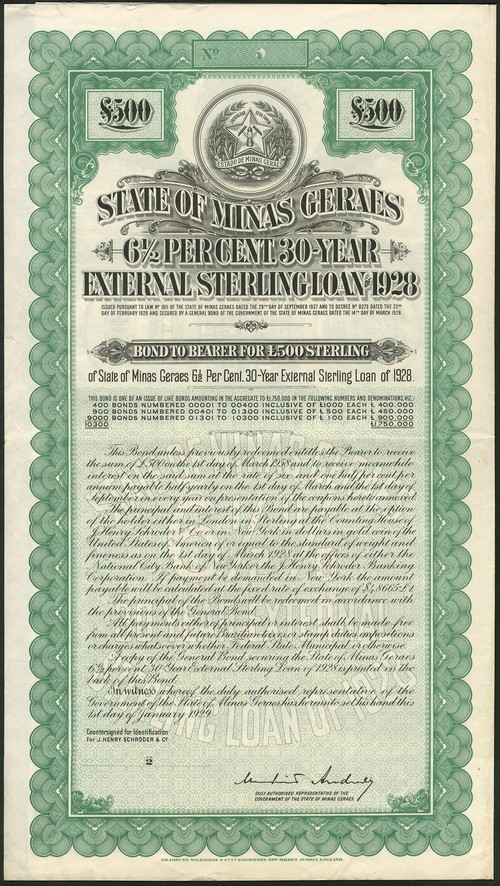 Nº
£500 £500
ESTADO DE MINAS GERAES
STATE OF MINAS GERAES
6½ PER CENT. 30-YEAR
EXTERNAL STERLING LOAN OF 1928
ISSUED PURSUANT TO LAW Nº 1011 OF THE STATE OF MINAS GERAES DATED THE 29TH DAY OF SEPTEMBER 1927 AND TO DECREE Nº 8273 DATED THE 23RD
DAY OF FEBRUARY 1928 AND SECURED BY A GENERAL BOND OF THE GOVERNMENT OF THE STATE OF MINAS GERAES DATED THE 14TH DAY OF MARCH 1928.
BOND TO BEARER FOR £500 STERLING
of State of Minas Geraes 6½ Per Cent. 30-Year External Sterling Loan of 1928.
THIS BOND IS ONE OF AN ISSUE OF LIKE BONDS AMOUNTING IN THE AGGREGATE TO £1,750,000 IN THE FOLLOWING NUMBERS AND DENOMINATIONS, VIZ.:
400 BONDS NUMBERED 00001 TO 00400 INCLUSIVE OF £1000 EACH £ 400,000
900 BONDS NUMBERED 00401 TO 01300 INCLUSIVE OF £ 500 EACH £ 450,000
9000 BONDS NUMBERED 01301 TO 10300 INCLUSIVE OF £ 100 EACH £ 900,000
10300 £1,750,000
This Bond unless previously redeemed entitles the Bearer to receive
the sum of £500 on the 1st day of March 1958 and to receive meanwhile
interest on the said sum at the rate of six and one half per cent per
annum payable half yearly on the 1st day of March and the 1st day of
September in every year on presentation of the coupons hereto annexed.
The principal and interest of this Bond are payable at the option
of the holder either in London in Sterling at the Counting House of
J. Henry Schroder & Co. or in New York in dollars in gold coin of the
United States of America of or equal to the standard of weight and
fineness as on the 1st day of March 1928 at the offices of either the
National City Bank of New York or the J. Henry Schroder Banking
Corporation. If payment be demanded in New York the amount
payable will be calculated at the fixed rate of exchange of $4.8665=£1
The principal of the Bonds will be redeemed in accordance with
the provisions of the General Bond.
All payments either of principal or interest shall be made free
from all present and future Brazilian taxes or stamp duties impositions
or charges whatsoever whether Federal State Municipal or otherwise.
A copy of the General Bond securing the State of Minas Geraes
6½ per cent. 30-Year External Sterling Loan of 1928 is printed on the
back of this Bond.
In witness whereof the duly authorised representative of the
Government of the State of Minas Geraes has hereunto set his hand this
1st day of January 1929.
Countersigned for Identification
For J. HENRY SCHRODER & Cº.
2
DULY AUTHORISED REPRESENTATIVE OF THE
GOVERNMENT OF THE STATE OF MINAS GERAES.
BRADBURY, WILKINSON & Cº Lº ENGRAVERS, NEW MALDEN, SURREY, ENGLAND.